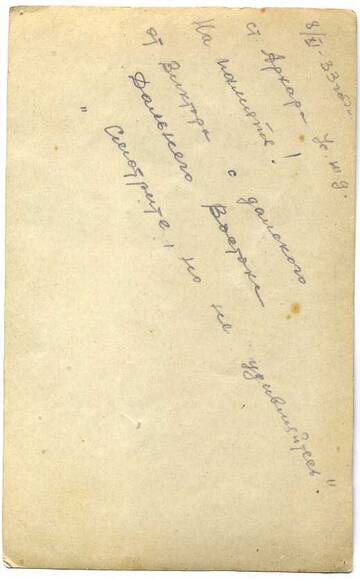 8/XI-33 год.
ст Архара Ус.ж.д.
На память!
от Виктора с далекого
Дальнего Востока
"Смотрите, но не удивляйтесь"